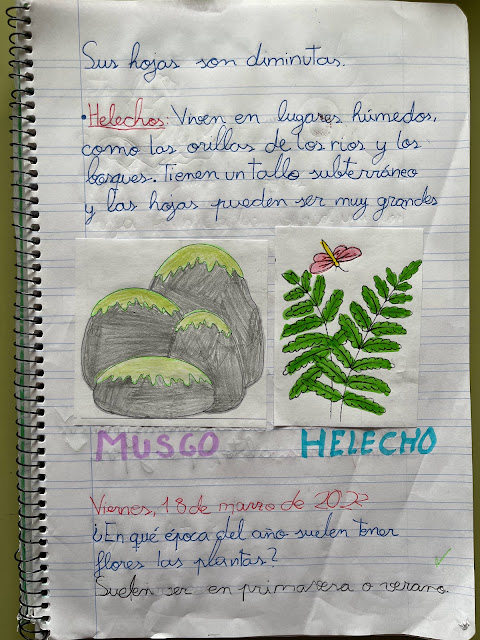 Sus hojas son diminutas.
· Helechos: Viven en lugares húmedos,
como las orillas de los rios y los
bosques. Tienen un tallo subterráneo
y las hojas pueden ser muy grandes
MUSGO HELECHO
Viernes, 18 de marzo de 2022
¿En qué época del año suelen tener
flores las plantas?
Suelen ser en primavera o verano.